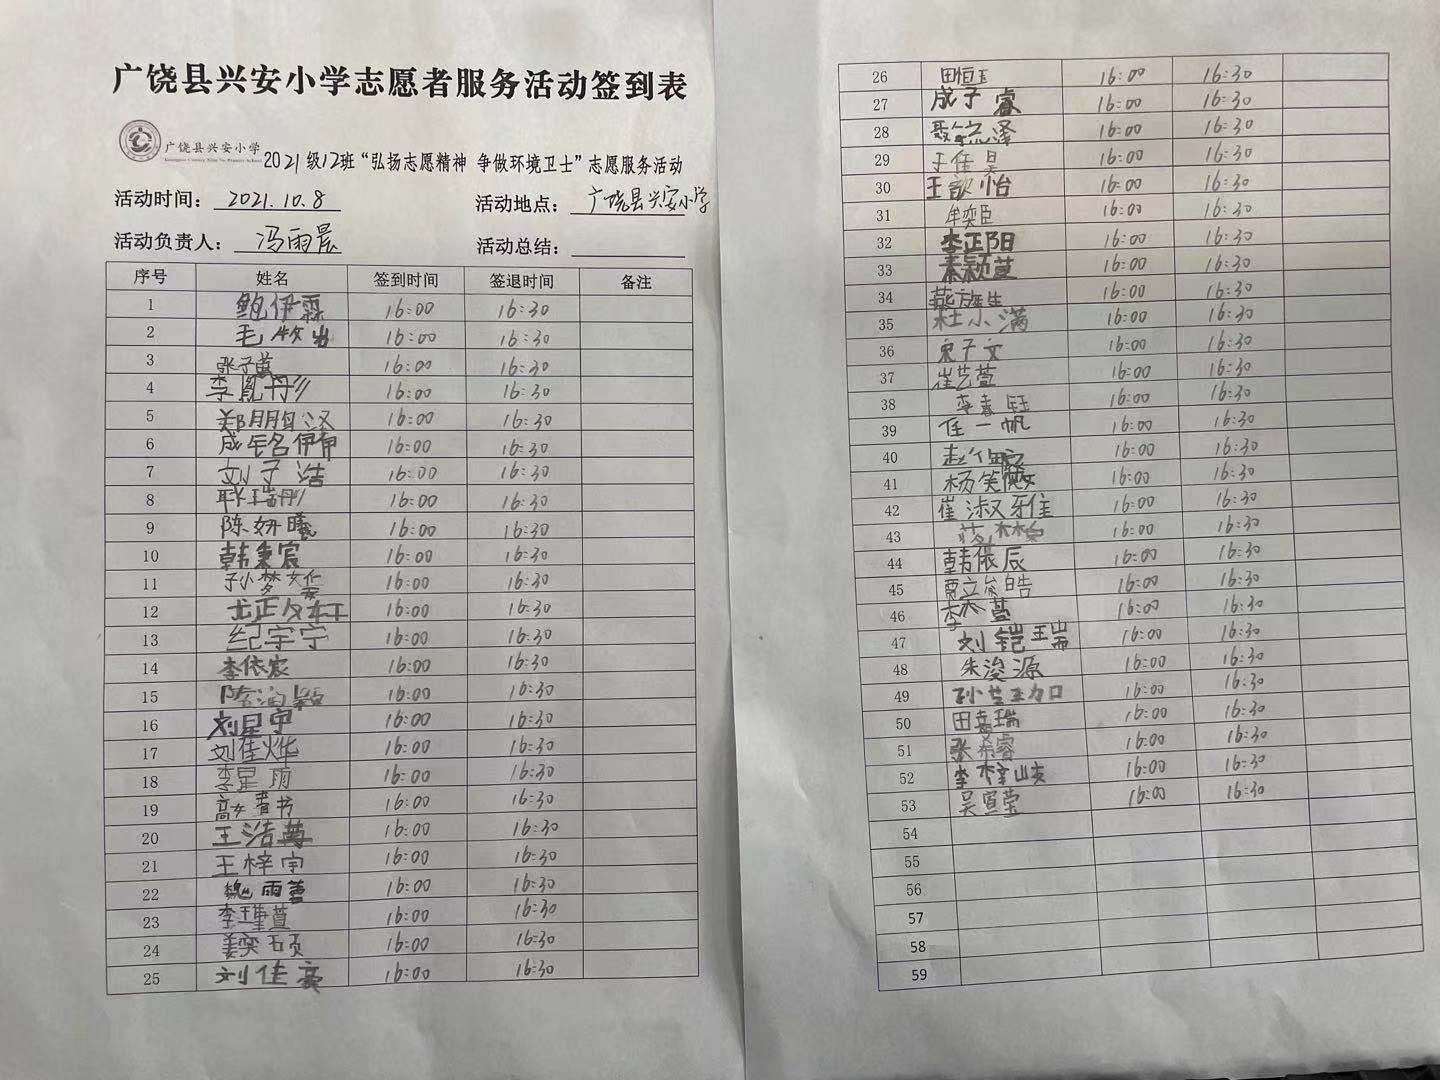 广饶县兴安小学志愿者服务活动签到表
广饶县兴安小学
2021级12班“弘扬志愿精神 争做环境卫士”志愿服务活动
活动时间： 2021.10.8 活动地点： 广饶县兴安小学
活动负责人： 冯雨晨 活动总结：
序号 姓名 签到时间 签退时间 备注
1 鲍伊霖 16:00 16:30
2 毛 16:00 16:30
3 张子萱 16:00 16:30
4 李凯丹彤 16:00 16:30
5 郑朋阳泽 16:00 16:30
6 成伊 16:00 16:30
7 刘子浩 16:00 16:30
8 耿瑞彤 16:00 16:30
9 陈妍曦 16:00 16:30
10 韩秉宸 16:00 16:30
11 孙梦 16:00 16:30
12 尤正 16:00 16:30
13 纪宇宁 16:00 16:30
14 李依宸 16:00 16:30
15 陈润颖 16:00 16:30
16 刘星宇 16:00 16:30
17 刘佳烨 16:00 16:30
18 李星雨 16:00 16:30
19 高书 16:00 16:30
20 王浩 16:00 16:30
21 王梓宇 16:00 16:30
22 魏雨萱 16:00 16:30
23 李瑾萱 16:00 16:30
24 姜奕硕 16:00 16:30
25 刘佳豪 16:00 16:30
26 田恒玉 16:00 16:30
27 成子睿 16:00 16:30
28 泽 16:00 16:30
29 于任昊 16:00 16:30
30 王歆怡 16:00 16:30
31 牟奕臣 16:00 16:30
32 李正阳 16:00 16:30
33 秦颖萱 16:00 16:30
34 燕 16:00 16:30
35 杜小满 16:00 16:30
36 宋子文 16:00 16:30
37 崔艺萱 16:00 16:30
38 李嘉钰 16:00 16:30
39 任一帆 16:00 16:30
40 赵 16:00 16:30
41 杨笑薇 16:00 16:30
42 崔淑雅 16:00 16:30
43 16:00 16:30
44 韩依辰 16:00 16:30
45 贾立皓 16:00 16:30
46 李萱 16:00 16:30
47 刘铠瑞 16:00 16:30
48 朱浚源 16:00 16:30
49 孙艺珈 16:00 16:30
50 田嘉瑞 16:00 16:30
51 张希睿 16:00 16:30
52 李梓岐 16:00 16:30
53 吴宣莹 16:00 16:30
54
55
56
57
58
59